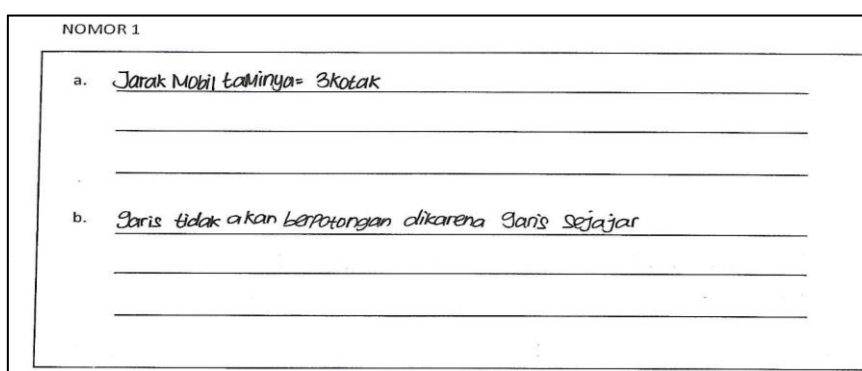 NOMOR 1
a. Jarak Mobil taMinya= 3kotak
b. garis tidak akan berpotongan dikarena garis sejajar